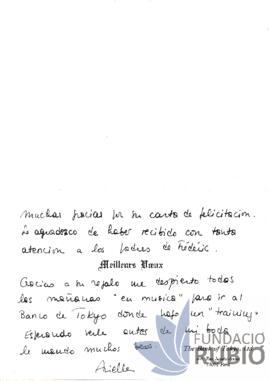 Muchas gracias por su carta de felicitacion.
Le agradesco de haber recibido con tanta
atencion a los padres de Fréderic.
Meilleurs Vœux
Gracias a su regalo me despierto todas
las mañanas "en musica" para ir al
Banco de Tokyo donde hago un "training"
Esperando verle antes de mi boda
le mando muchos besos
The Bank of Tokyo, Ltd.
Arielle
FUNDACIÓ
RUBIÓ